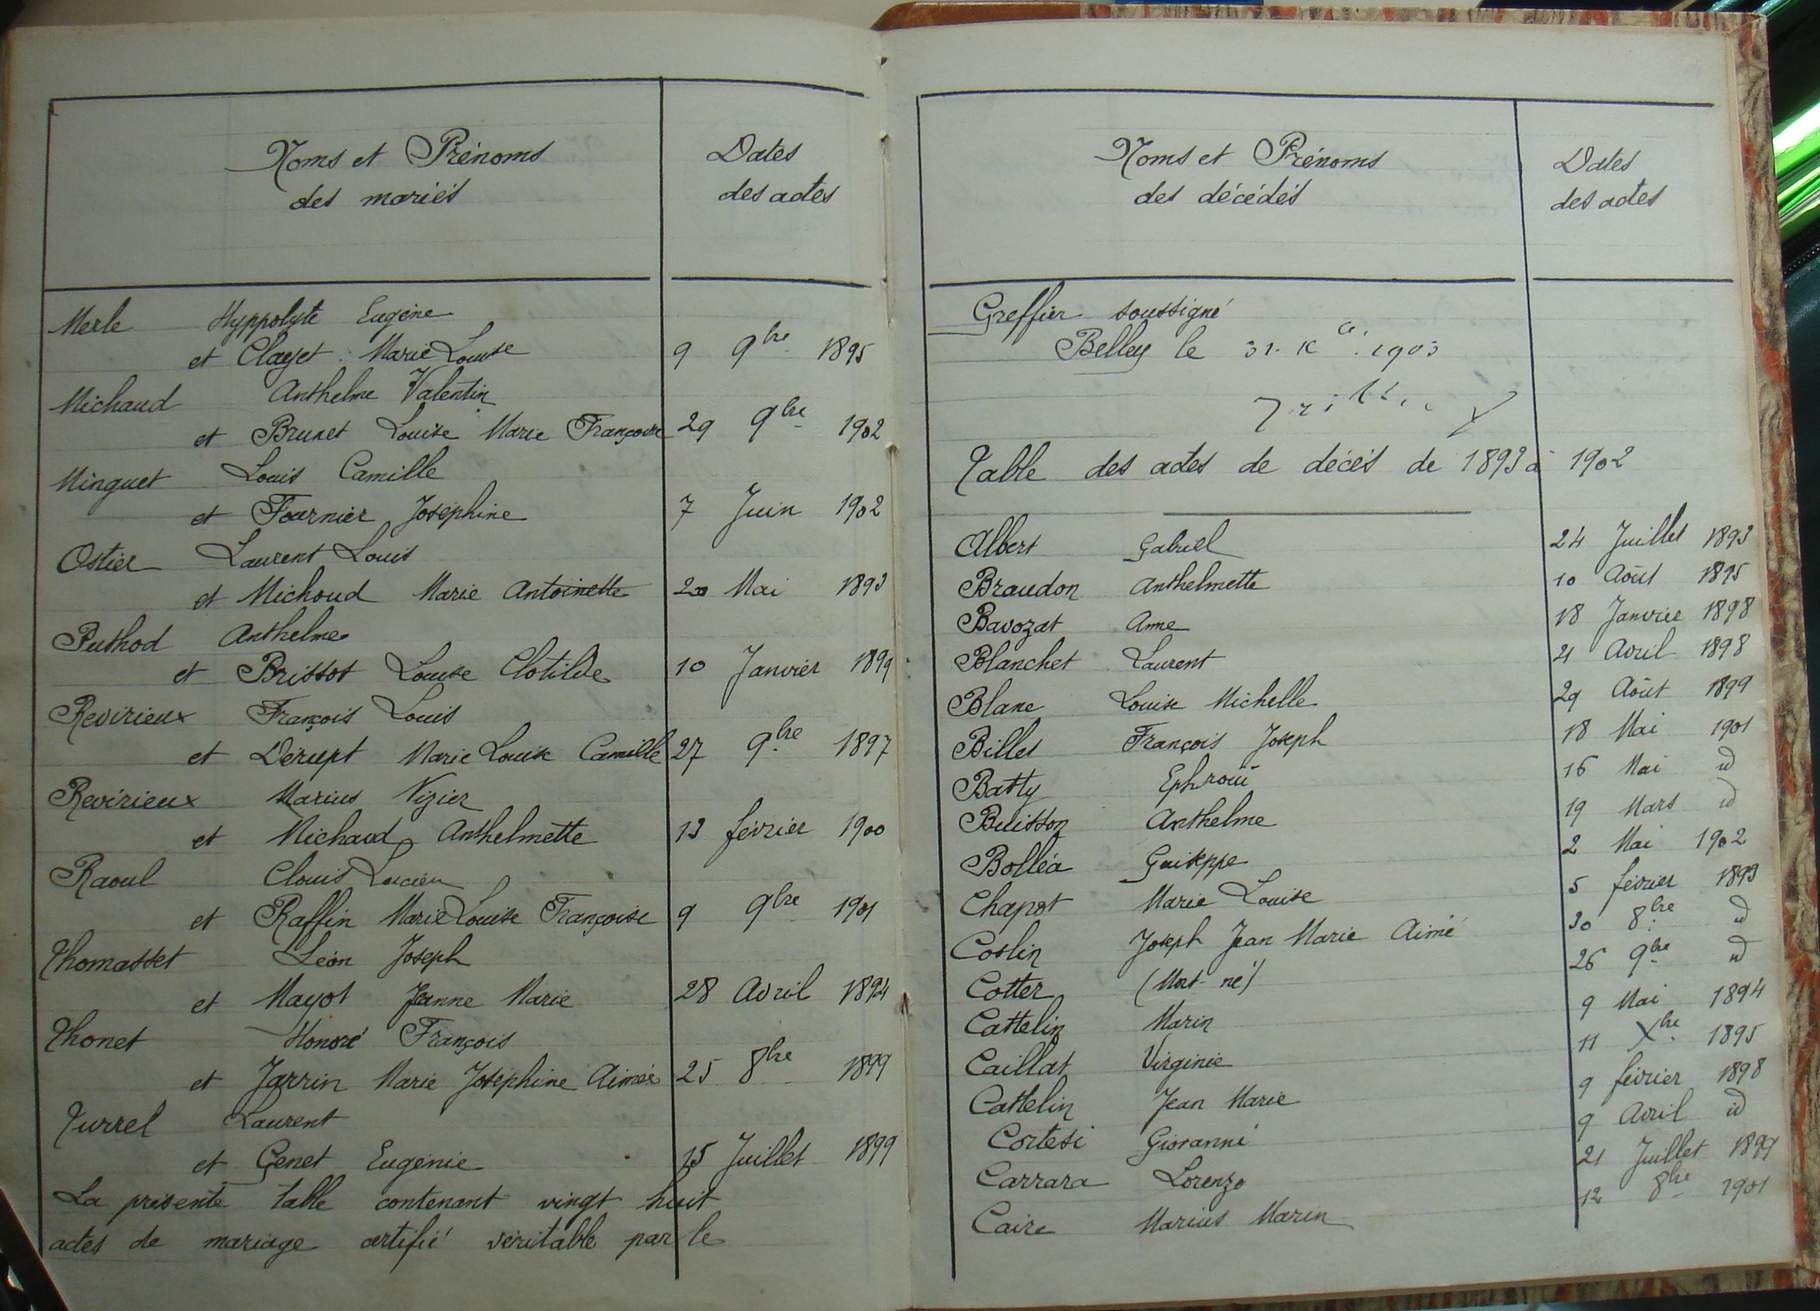 Noms et Prénoms
des mariés
Dates
des actes
Merle Hyppolyte Eugène
et Clayet Marie Louise 9 9bre 1895
Michaud Anthelme Valentin
et Brunet Louise Marie Françoise 29 9bre 1902
Minguet Louis Camille
et Fournier Joséphine 7 Juin 1902
Ostier Laurent Louis
et Michoud Marie Antoinette 20 Mai 1893
Puthod Anthelme
et Brissot Louise Clotilde 10 Janvier 1899
Revirieux François Louis
et Dérupt Marie Louise Camille 27 9bre 1897
Revirieux Marius Vizier
et Michaud Anthelmette 13 février 1900
Raoul Clovis Lucien
et Raffin Marie Louise Françoise 9 9bre 1901
Thomasset Léon Joseph
et Mayot Jeanne Marie 28 Avril 1894
Thonet Honoré François
et Jarrin Marie Joséphine Aimée 25 8bre 1899
Turrel Laurent
et Genet Eugénie 15 Juillet 1899
La présente table contenant vingt huit
actes de mariage certifié véritable par le
Noms et Prénoms
des décédés
Dates
des actes
Greffier soussigné
Belley le 31 1903
Table des actes de décès de 1893 à 1902
Albert Gabriel 24 Juillet 1893
Braudon Anthelmette 10 Août 1895
Bavozat Anne 18 Janvier 1898
Blanchet Laurent 21 Avril 1898
Blanc Louise Michelle 29 Août 1899
Billet François Joseph 18 Mai 1901
Batty Ephroïi 16 Mai id
Buisson Anthelme 19 Mars id
Bolléa Guiseppe 2 Mai 1902
Chapot Marie Louise 5 février 1893
Coslin Joseph Jean Marie Aimé 30 8bre id
Cotter (Mort-né) 26 9bre id
Cattelin Marin 9 Mai 1894
Caillat Virginie 11 Xbre 1895
Cattelin Jean Marie 9 février 1898
Cortesi Giovanni 9 Avril id
Carrara Lorenzo 21 Juillet 1899
Caire Marius Marin 12 8bre 1901